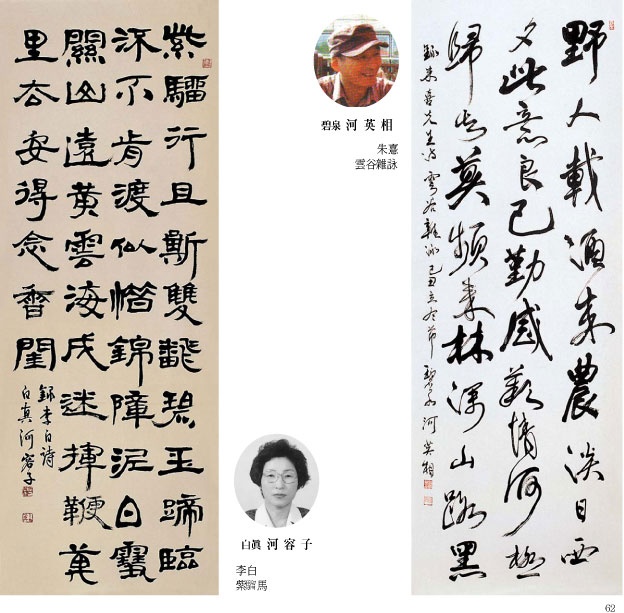 紫騮行且嘶雙翻碧玉蹄臨
流不肯渡似惜錦障泥白雪
關山遠黃雲海戍迷揮鞭萬
里去安得念香閨
錄李白詩
白真 河容子
碧泉 河英相
朱憙
雲谷雜詠
白眞 河容子
李白
紫騮馬
野人載酒來農談日西
夕此意良已勤感歎情何極
歸去莫頻來林深山路黑
錄朱喜先生詩 雲谷雜詠 己丑立冬節 碧泉 河英相
62